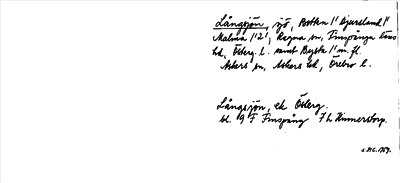 Långsjön, sjö, Botten l! Djurslund l!
Malma l! 2!, Regna sn, Finspånga läns
hd, Österg. l. samt Bysta l! m. fl.
Askers sn, Askers hd, Örebro l.
Långsjön, ek Österg.
bl. 9 F Finspång 7 h Kumerstorp.